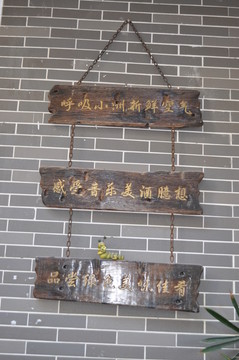 呼吸小洲新鲜空气
感受音乐美酒臆想
品尝美味佳肴